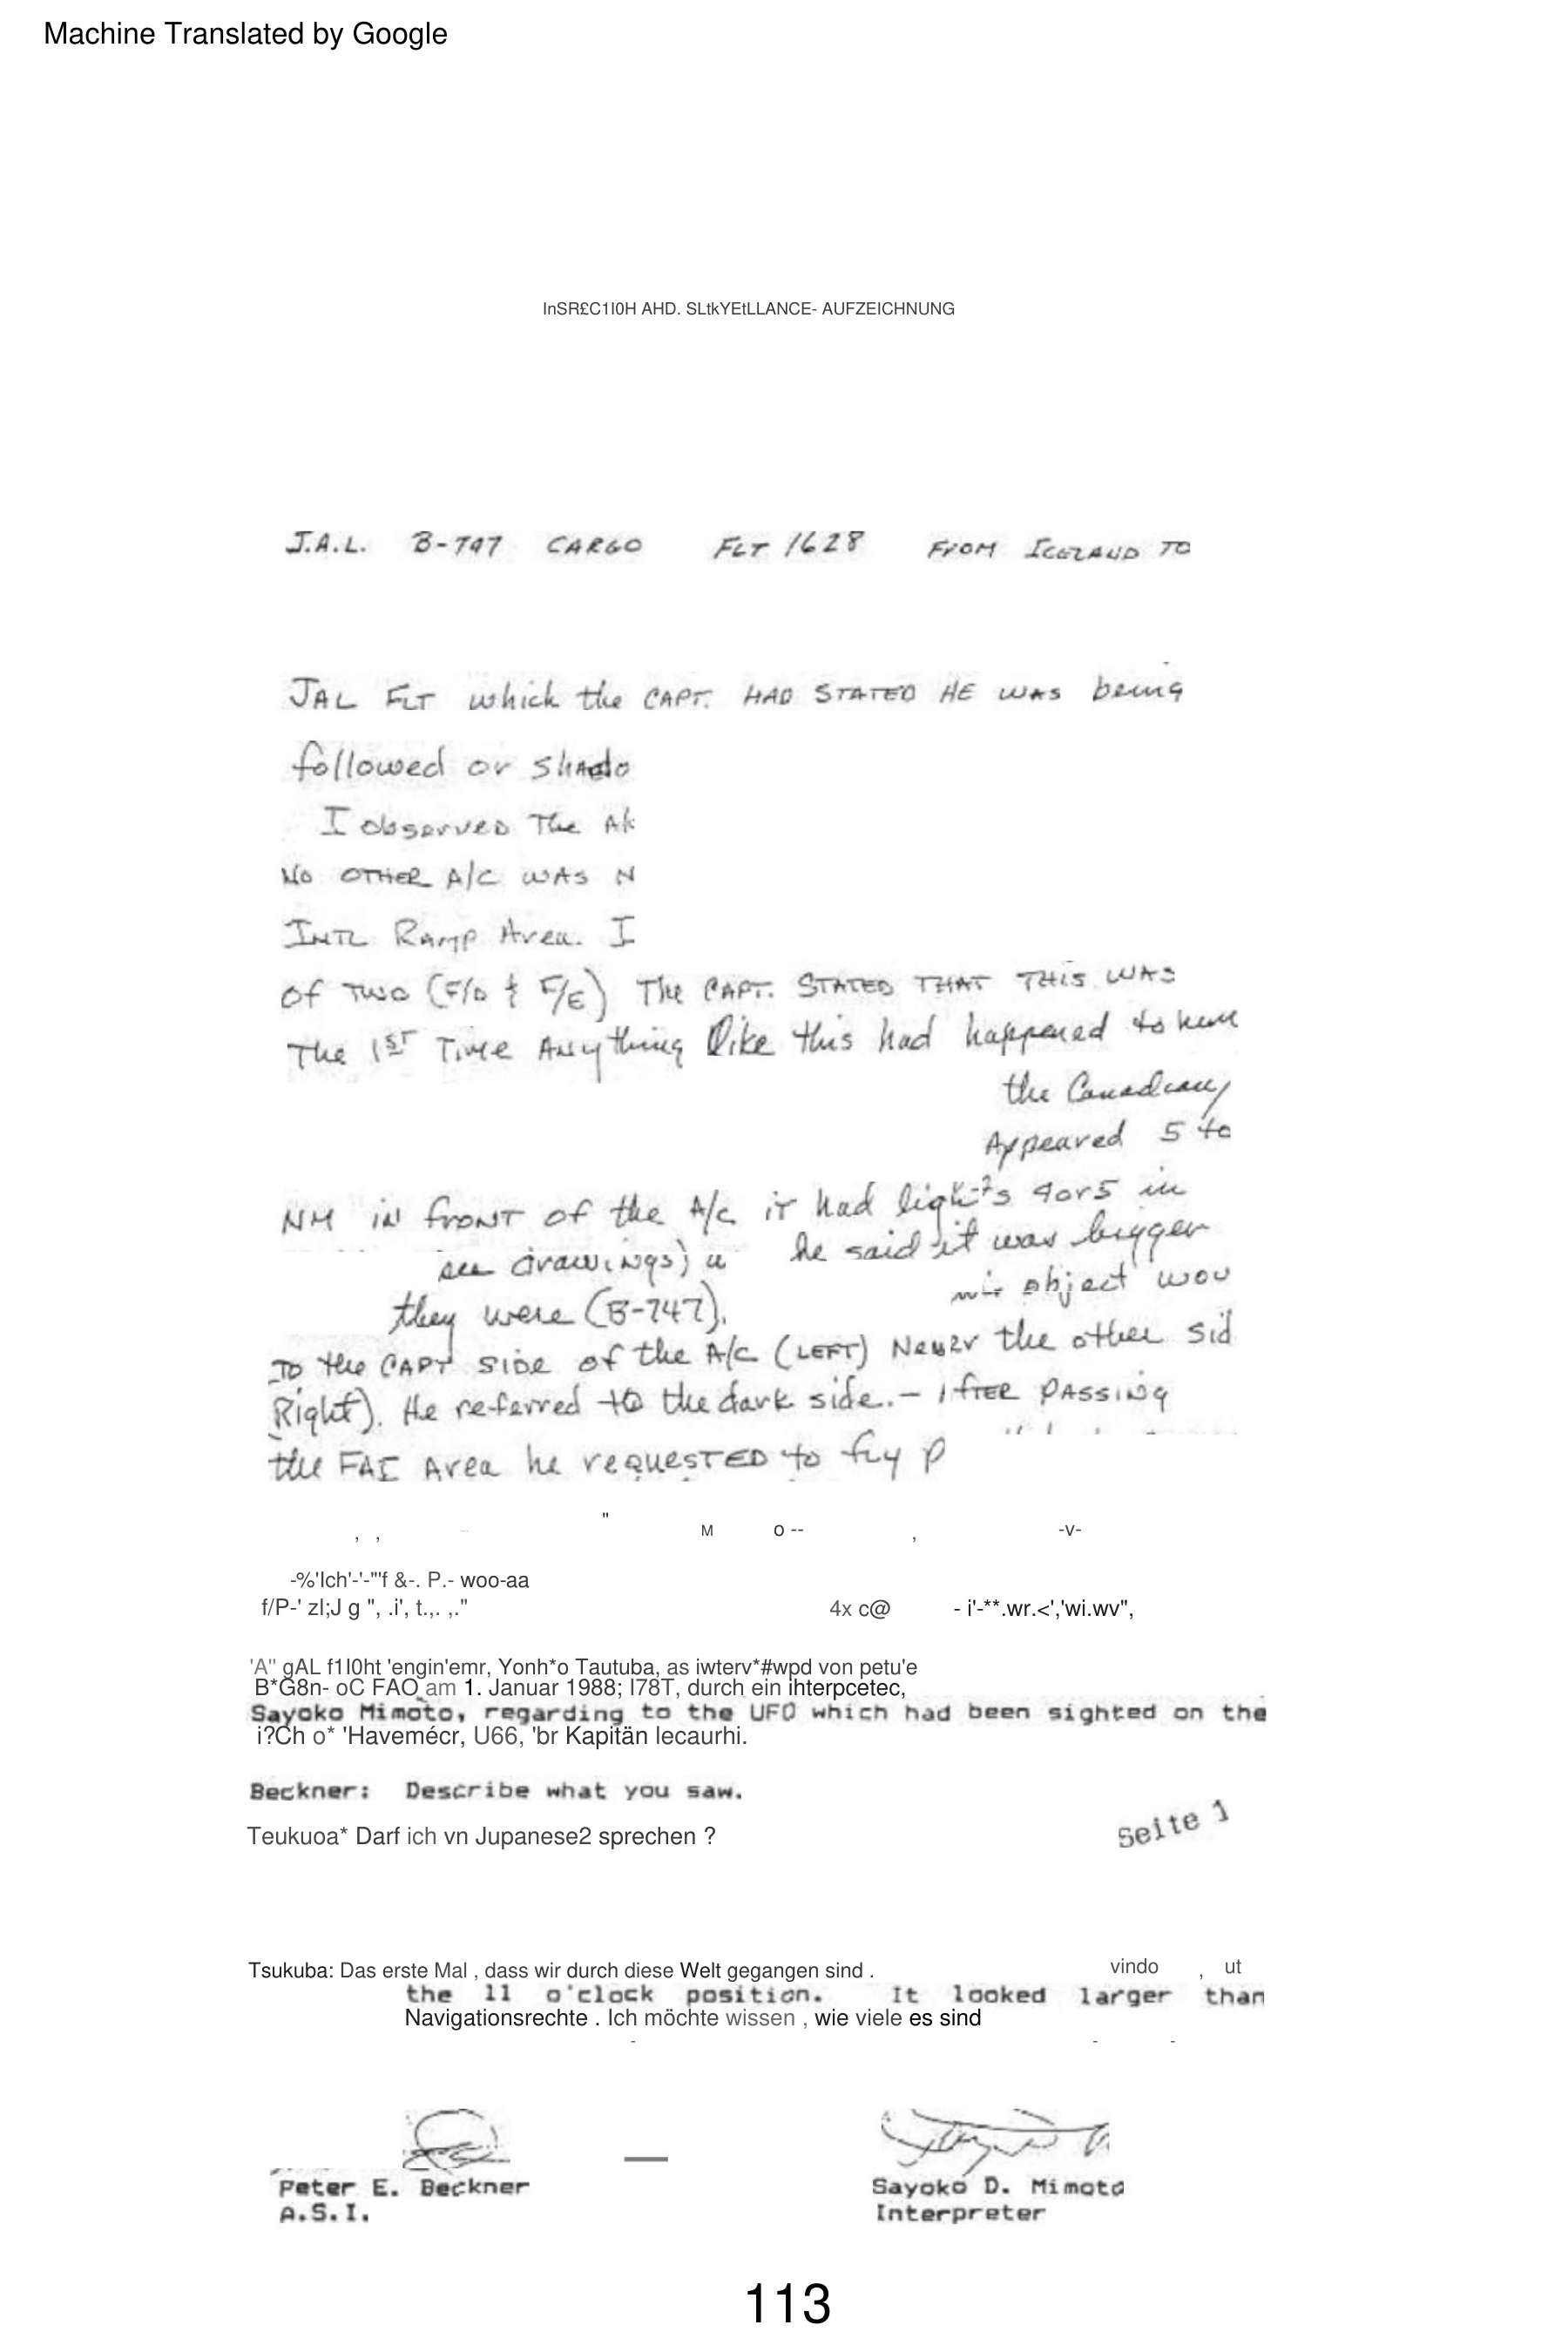 Machine Translated by Google
InSR£C1I0H AHD. SLtkYEtLLANCE- AUFZEICHNUNG
J.A.L. B-747 CARGO FLT 1628 FROM ICELAND TO
JAL FLT which the CAPT. HAD STATED HE WAS being
followed or shado
I observed The
No OTHER A/C WAS N
INTL Ramp Area. I
of TWO (F/O & F/E) The CAPT. STATED THAT THIS WAS
The 1ST Time Anything like this had happened to him
the Canadian
Appeared 5 to
NM in front of the A/C it had lights 4or5 in
see drawings) he said it was bigger
they were (B-747). object wou
To the CAPT side of the A/C (LEFT) Never the other sid
Right). He referred to the dark side. - After PASSING
the FAI Area he requested to fly p
" M o --
, , , -v-
-%'Ich'-'-"'f &-. P.- woo-aa
f/P-' zI;J g ", .i', t.,. ,." 4x c@ - i'-**.wr.<','wi.wv",
'A" gAL f1I0ht 'engin'emr, Yonh*o Tautuba, as iwterv*#wpd von petu'e
B*G8n- oC FAO am 1. Januar 1988; I78T, durch ein ihterpcetec,
Sayoko Mimoto, regarding to the UFO which had been sighted on the
i?Ch o* 'Havemécr, U66, 'br Kapitän lecaurhi.
Beckner: Describe what you saw.
Teukuoa* Darf ich vn Jupanese2 sprechen ?
Seite 1
Tsukuba: Das erste Mal , dass wir durch diese Welt gegangen sind . vindo , ut
the 11 o'clock position. It looked larger than
Navigationsrechte . Ich möchte wissen , wie viele es sind
Peter E. Beckner Sayoko D. Mimoto
A.S.I. Interpreter
113